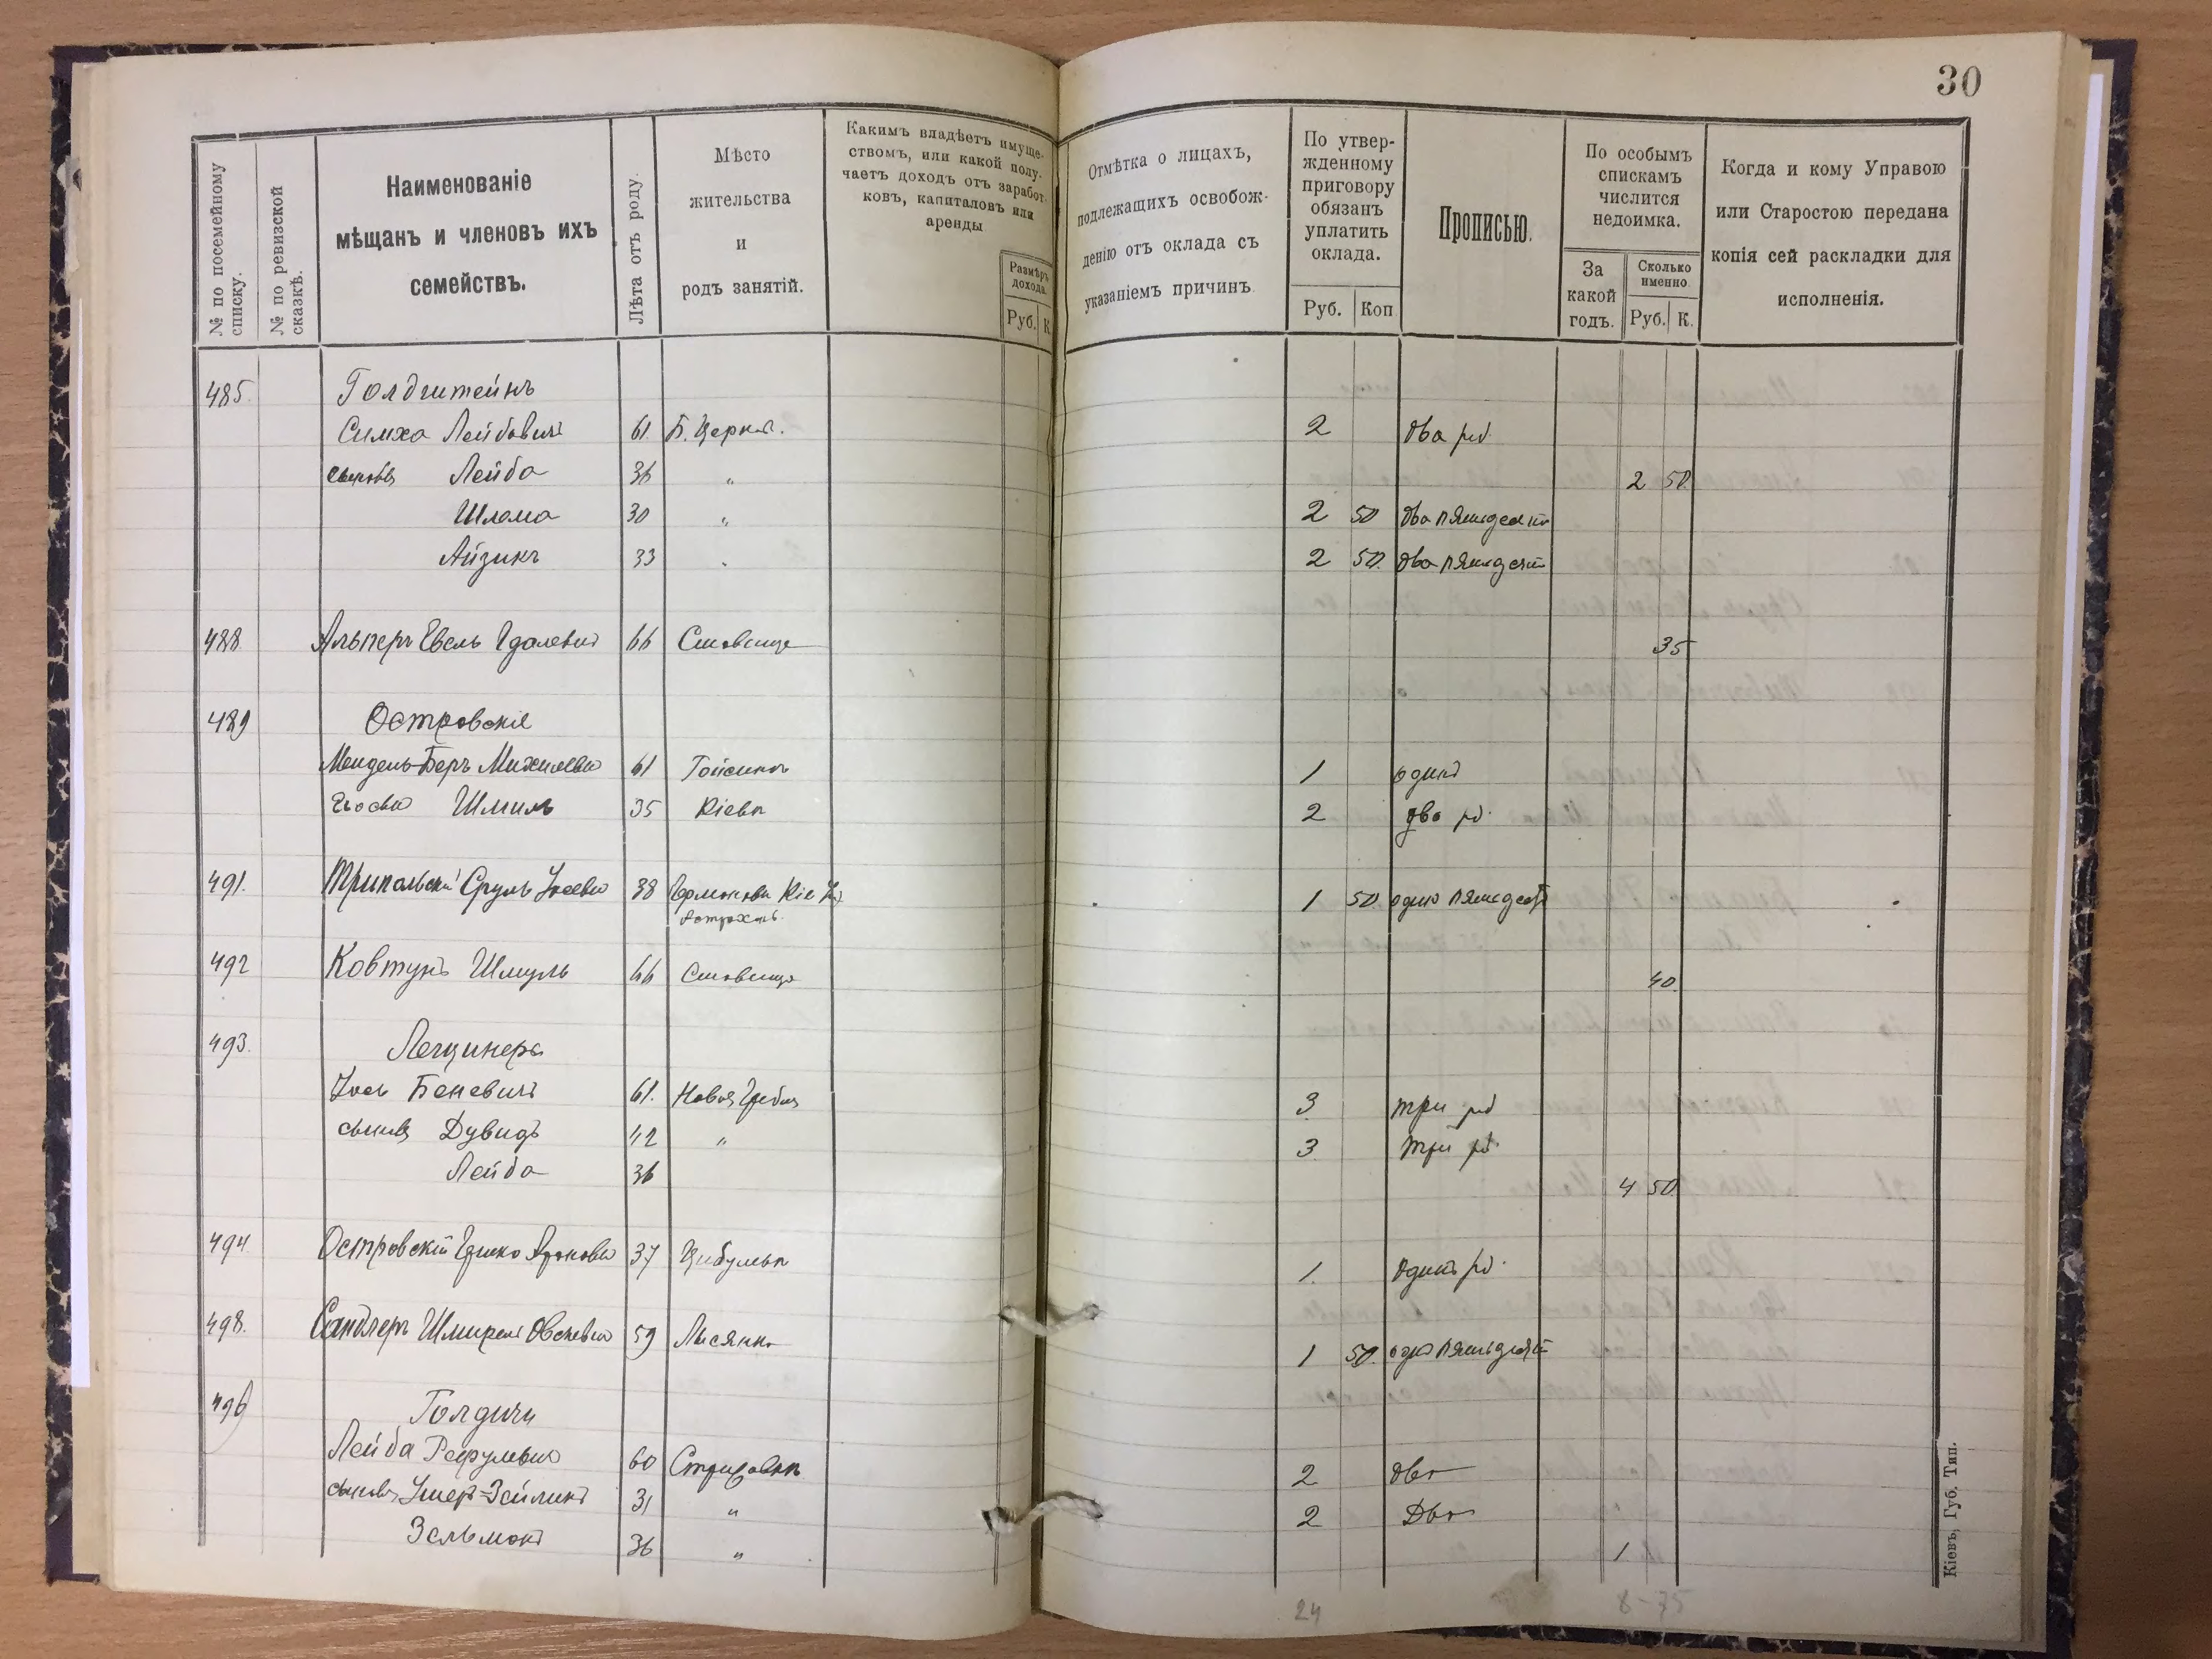 30
№ по посемейному списку.
№ по ревизской сказкѣ.
Наименованіе
мѣщанъ и членовъ ихъ
семействъ.
Лѣта отъ роду.
Мѣсто
жительства
и
родъ занятій.
Какимъ владѣетъ имуще-
ствомъ, или какой полу-
чаетъ доходъ отъ заработ-
ковъ, капиталовъ или
аренды
Размѣръ
дохода.
Руб. К.
Отмѣтка о лицахъ,
подлежащихъ освобож-
денію отъ оклада съ
указаніемъ причинъ
По утвер-
жденному
приговору
обязанъ
уплатить
оклада.
Руб. Коп.
Прописью.
По особымъ
спискамъ
числится
недоимка.
За
какой
годъ.
Сколько
именно
Руб. К.
Когда и кому Управою
или Старостою передана
копія сей раскладки для
исполненія.
485. Голдштейнъ
Симха Лейбовичъ 61. Б. Церков. 2 два руб.
сыновья Лейба 36 „ 2 50
Шлома 30 „ 2 50 два пятьдесят
Айзикъ 33 „ 2 50. два пятьдесят
488. Альперъ Евель 66 Ставище 35
489 Островскіе
Мендель-Беръ 61 1 одинъ
Его сынъ Шмиль 35 Кіевъ 2 два руб.
491. Трипольскій Сруль 38 1 50 один пятьдесят
492 Ковтунъ Шмуль 66 Ставище 40
493. Лещинеръ
Беневичъ 61. Новая Гребля 3 три руб
сыновья Дувидъ 42 „ 3 три руб.
Лейба 36 4 50
494. Островскій 37 1. Один руб.
498. Сандлеръ 59 Лисянка 1 50. один пятьдесят
496
Лейба 60 2 два
сыновья 31 „ 2 Два
Зельманъ 36 „ 1
24
8-75
Кіевъ, Губ. Тип.